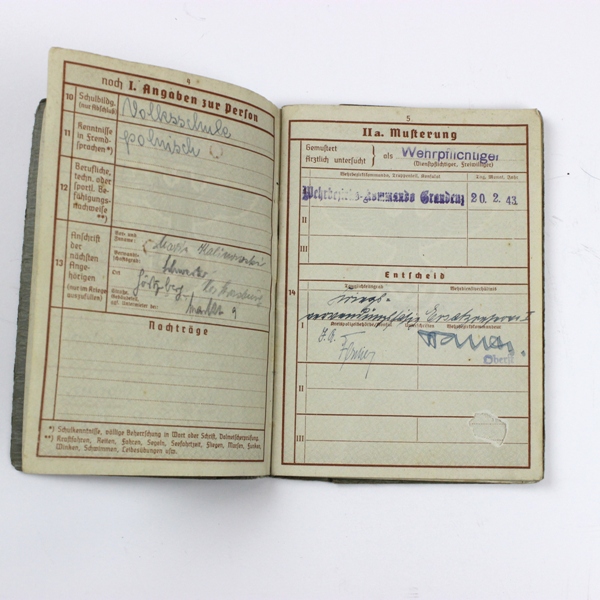 4
noch I. Angaben zur Person
10 Schulbildg. (nur Abschluß)
Volksschule
11 Kenntnisse in Fremdsprachen*)
polnisch
12 Berufliche, techn. oder sportl. Befähigungsnachweise **)
13 Anschrift der nächsten Angehörigen (nur im Kriege auszufüllen)
Vor- und Zuname:
Maria Kalinowski
Verwandtschaftsgrad:
Schwester
Ort
Straße,
Nachträge
*) Schulkenntnisse, völlige Beherrschung in Wort oder Schrift, Dolmetscherprüfung.
**) Kraftfahren, Reiten, Fahren, Segeln, Seefahrtzeit, Fliegen, Morsen, Funken,
Winken, Schwimmen, Leibesübungen usw.
5
IIa. Musterung
Gemustert
Ärztlich untersucht } als Wehrpflichtiger
(Dienstpflichtiger, Freiwilliger)
Tag, Monat, Jahr
Wehrbezirks-Kommando Graudenz 20. 2. 43.
II
III
Entscheid
14
Tauglichkeitsgrad
Wehrdienstverhältnis
kriegs-
I
verwendungsfähig Ersatzreserve II
Oberst
II
III